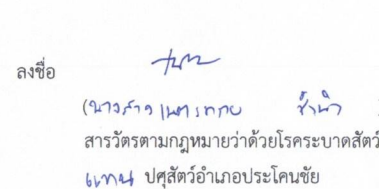 ลงชื่อ
(นางสาว
สารวัตรตามกฎหมายว่าด้วยโรคระบาดสัตว์
แทน ปศุสัตว์อำเภอประโคนชัย